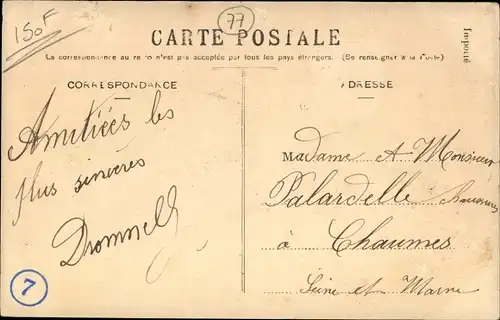 150F
77
CARTE POSTALE
La correspondance au recto n'est pas acceptée par tous les pays étrangers. (Se renseigner à la Poste)
Imprimé
CORRESPONDANCE
ADRESSE
Amitiées les
plus sincères
Madame et Monsieur
Palardelle
à
Chaumes
Seine et Marne
7